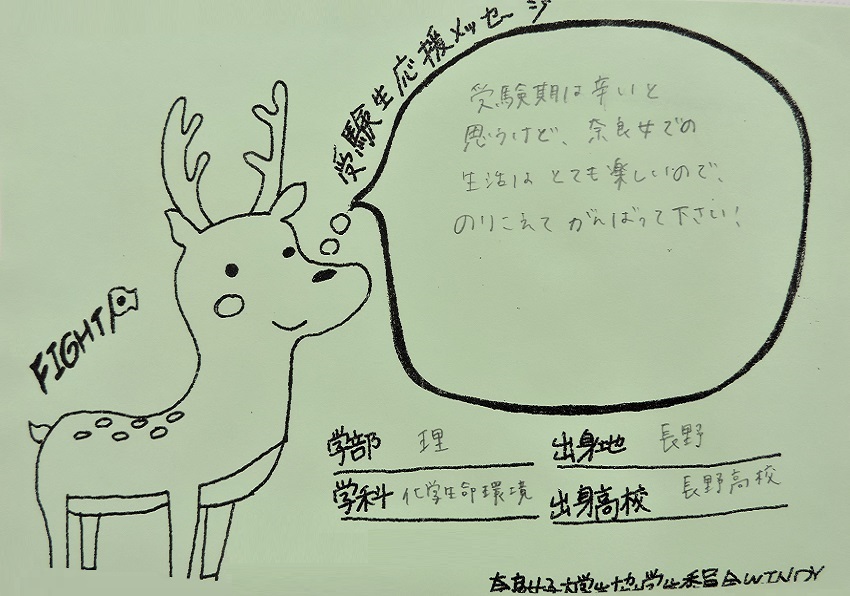 受験生応援メッセージ
受験期は辛いと
思うけど、奈良女での
生活は とても楽しいので、
のりこえて がんばって下さい!
FIGHT
学部 理
出身地 長野
学科 化学生命環境
出身高校 長野高校
奈良女子大学生協学生委員会WINDY